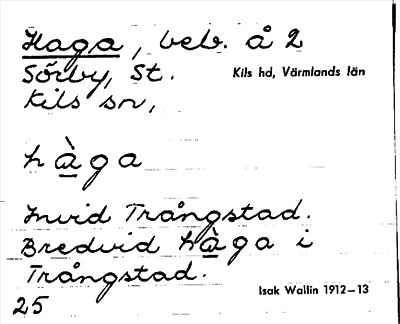 Haga, beb. å 2
Sörby, St.
Kils hd, Värmlands län
Kils sn,
hàga
Invid Trångstad.
Bredvid hàga i
Trångstad.
Isak Wallin 1912–13
25